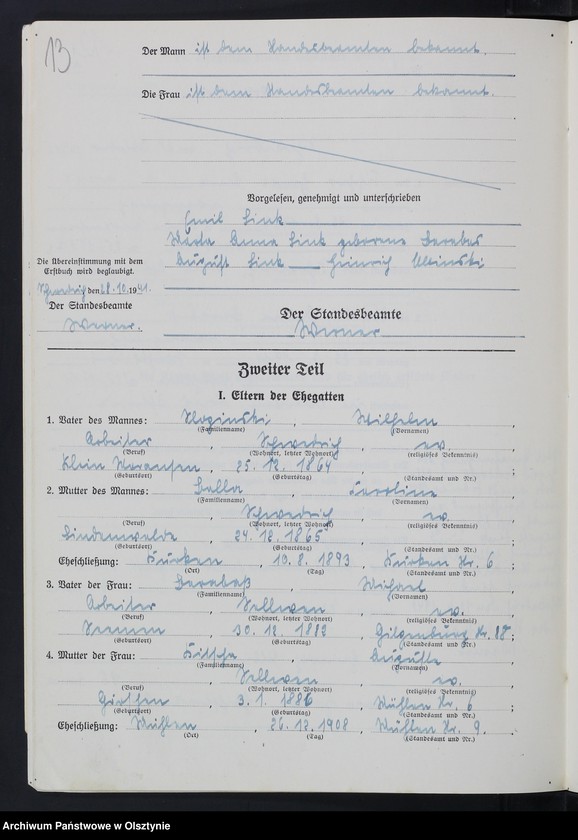 13
Der Mann ist dem Standesbeamten bekannt.
Die Frau ist dem Standesbeamten bekannt.
Vorgelesen, genehmigt und unterschrieben
Emil Link
Anna Link geborene
August Link — Heinrich
Die Übereinstimmung mit dem
Erstbuch wird beglaubigt.
Schwedrich den 18.10.1941.
Der Standesbeamte
Werner.
Der Standesbeamte
Werner
Zweiter Teil
I. Eltern der Ehegatten
1. Vater des Mannes: , Wilhelm ,
(Familienname) (Vornamen)
Arbeiter , Schwedrich , ev. ,
(Beruf) (Wohnort, letzter Wohnort) (religiöses Bekenntnis)
Klein Maransen , 25.12.1864 , ;
(Geburtsort) (Geburtstag) (Standesamt und Nr.)
2. Mutter des Mannes: , Karoline ,
(Familienname) (Vornamen)
, Schwedrich , ev. ,
(Beruf) (Wohnort, letzter Wohnort) (religiöses Bekenntnis)
Lindenwalde , 24.12.1865 , ;
(Geburtsort) (Geburtstag) (Standesamt und Nr.)
Eheschließung: Kurken , 19.8.1893 , Kurken Nr. 6 ;
(Ort) (Tag) (Standesamt und Nr.)
3. Vater der Frau: , Michael ,
(Familienname) (Vornamen)
Arbeiter , Sellwen , ev. ,
(Beruf) (Wohnort, letzter Wohnort) (religiöses Bekenntnis)
Seemen , 30.12.1883 , Gilgenburg Nr. 88 ;
(Geburtsort) (Geburtstag) (Standesamt und Nr.)
4. Mutter der Frau: , Auguste ,
(Familienname) (Vornamen)
, Sellwen , ev. ,
(Beruf) (Wohnort, letzter Wohnort) (religiöses Bekenntnis)
, 3.1.1886 , Mühlen Nr. 6 ;
(Geburtsort) (Geburtstag) (Standesamt und Nr.)
Eheschließung: Mühlen , 26.12.1908 , Mühlen Nr. 9. ;
(Ort) (Tag) (Standesamt und Nr.)
Archiwum Państwowe w Olsztynie